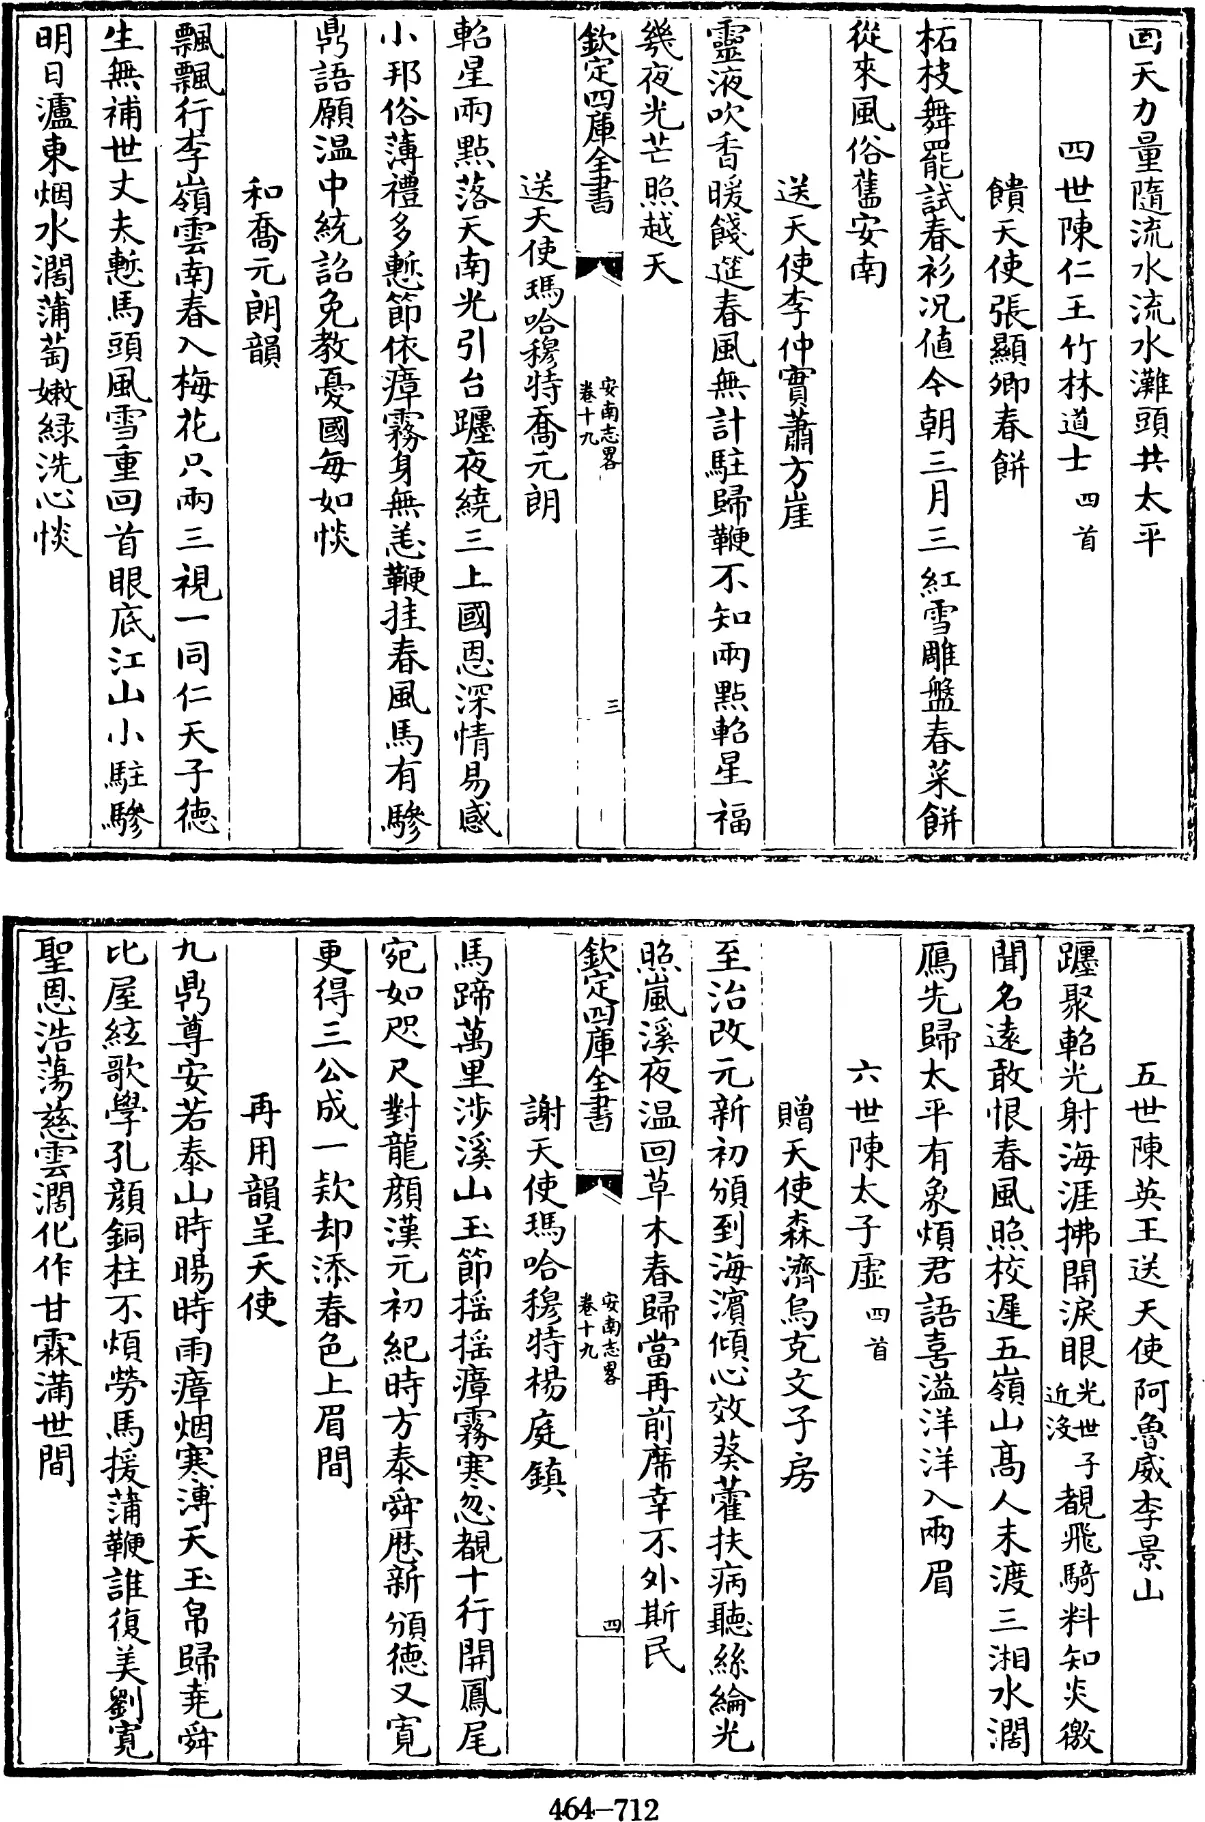 囬天力量隨流水流水灘頭共太平
四世陳仁王竹林道士 四首
饋天使張顯卿春餅
柘枝舞罷試春衫况値今朝三月三紅雪雕盤春菜餅
從來風俗舊安南
送天使李仲賓蕭方崖
靈液吹香暖餞筵春風無計駐歸鞭不知兩點軺星福
幾夜光芒照越天
欽定四庫全書
安南志畧
卷十九
三
送天使瑪哈穆特喬元朗
軺星兩點落天南光引台躔夜繞三上國恩深情易感
小邦俗薄禮多慙節依瘴霧身無恙鞭挂春風馬有驂
鼎語願温中統詔免教憂國每如惔
和喬元朗韻
飄飄行李嶺雲南春入梅花只兩三視一同仁天子德
生無補世丈夫慙馬頭風雪重回首眼底江山小駐驂
明日瀘東烟水濶蒲萄嫩緑洗心惔
五世陳英王送天使阿魯威李景山
躔聚軺光射海涯拂開淚眼光世子近沒覩飛騎料知炎徼
聞名遠敢恨春風照校遲五嶺山髙人未渡三湘水濶
鴈先歸太平有象煩君語喜溢洋洋入兩眉
六世陳太子虛 四首
贈天使森濟烏克文子房
至治改元新初頒到海濱傾心效葵藿扶病聽絲綸光
照嵐溪夜温回草木春歸當再前席幸不外斯民
欽定四庫全書
安南志畧
卷十九
四
謝天使瑪哈穆特楊庭鎮
馬蹄萬里涉溪山玉節揺揺瘴霧寒忽覩十行開鳳尾
宛如咫尺對龍顔漢元初紀時方泰舜厯新頒德又寛
更得三公成一欵却添春色上眉間
再用韻呈天使
九鼎尊安若泰山時暘時雨瘴烟寒溥天玉帛歸堯舜
比屋絃歌學孔顔銅柱不煩勞馬援蒲鞭誰復羡劉寛
聖恩浩蕩慈雲濶化作甘霖滿世間
464-712